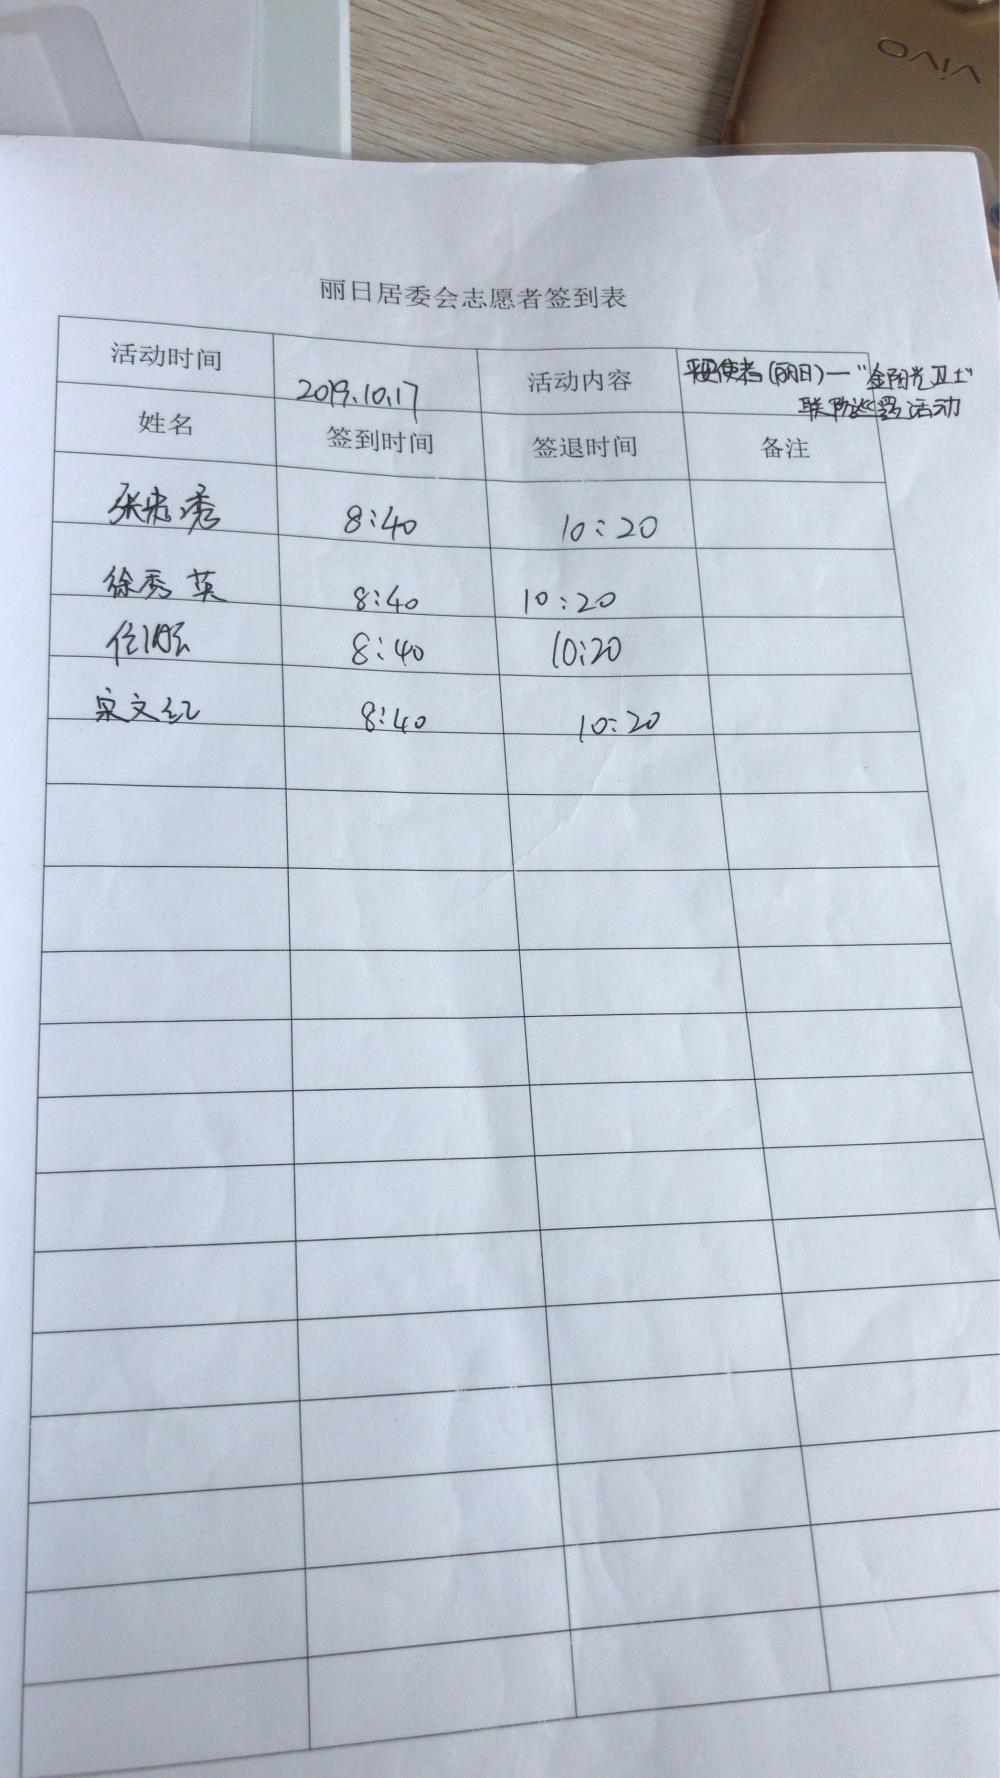 vivo
丽日居委会志愿者签到表
活动时间 2019.10.17 活动内容 平安使者(丽日)—"金阳光卫士"
联防巡逻活动
姓名 签到时间 签退时间 备注
张 秀 8:40 10:20
徐秀英 8:40 10:20
8:40 10:20
宋文红 8:40 10:20